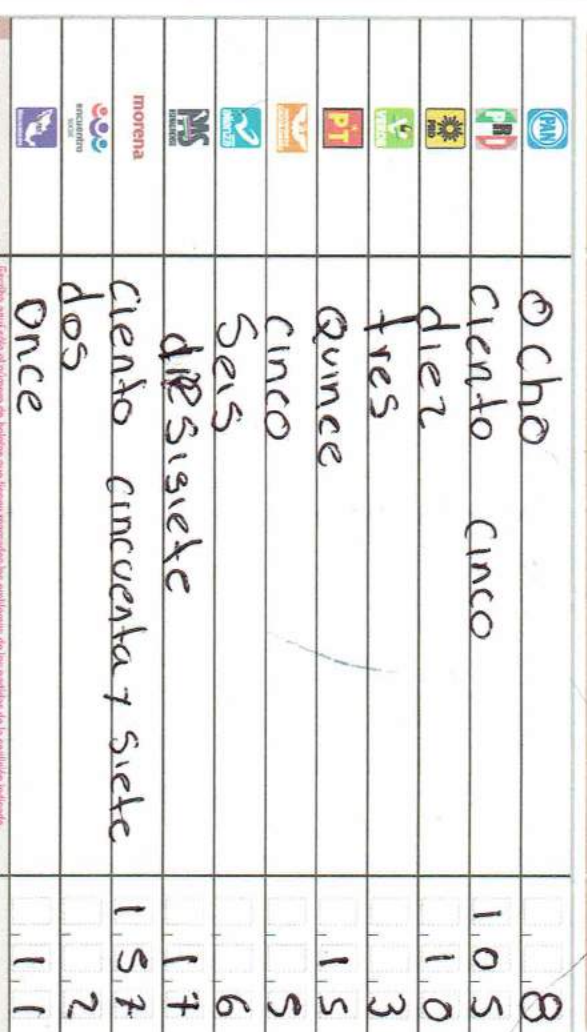 PAN Ocho 8
PRI Ciento Cinco 105
PRD diez 10
VERDE tres 3
PT Quince 15
Cinco 5
Seis 6
diesisiete 17
morena Ciento cincuenta y Siete 157
encuentro social dos 2
Once 11